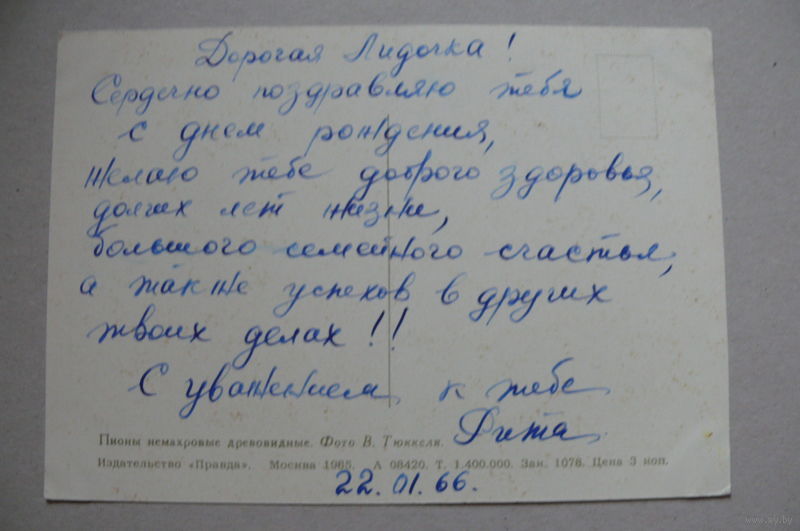 Дорогая Лидочка!
Сердечно поздравляю тебя
с днем рождения,
желаю тебе доброго здоровья,
долгих лет жизни,
большого семейного счастья,
а также успехов в других
твоих делах!!
С уважением к тебе
Рита
Пионы немахровые древовидные. Фото В. Тюккеля.
Издательство «Правда». Москва 1965. А 08420. Т. 1.400.000. Зак. 1078. Цена 3 коп.
22.01.66.
www.ay.by